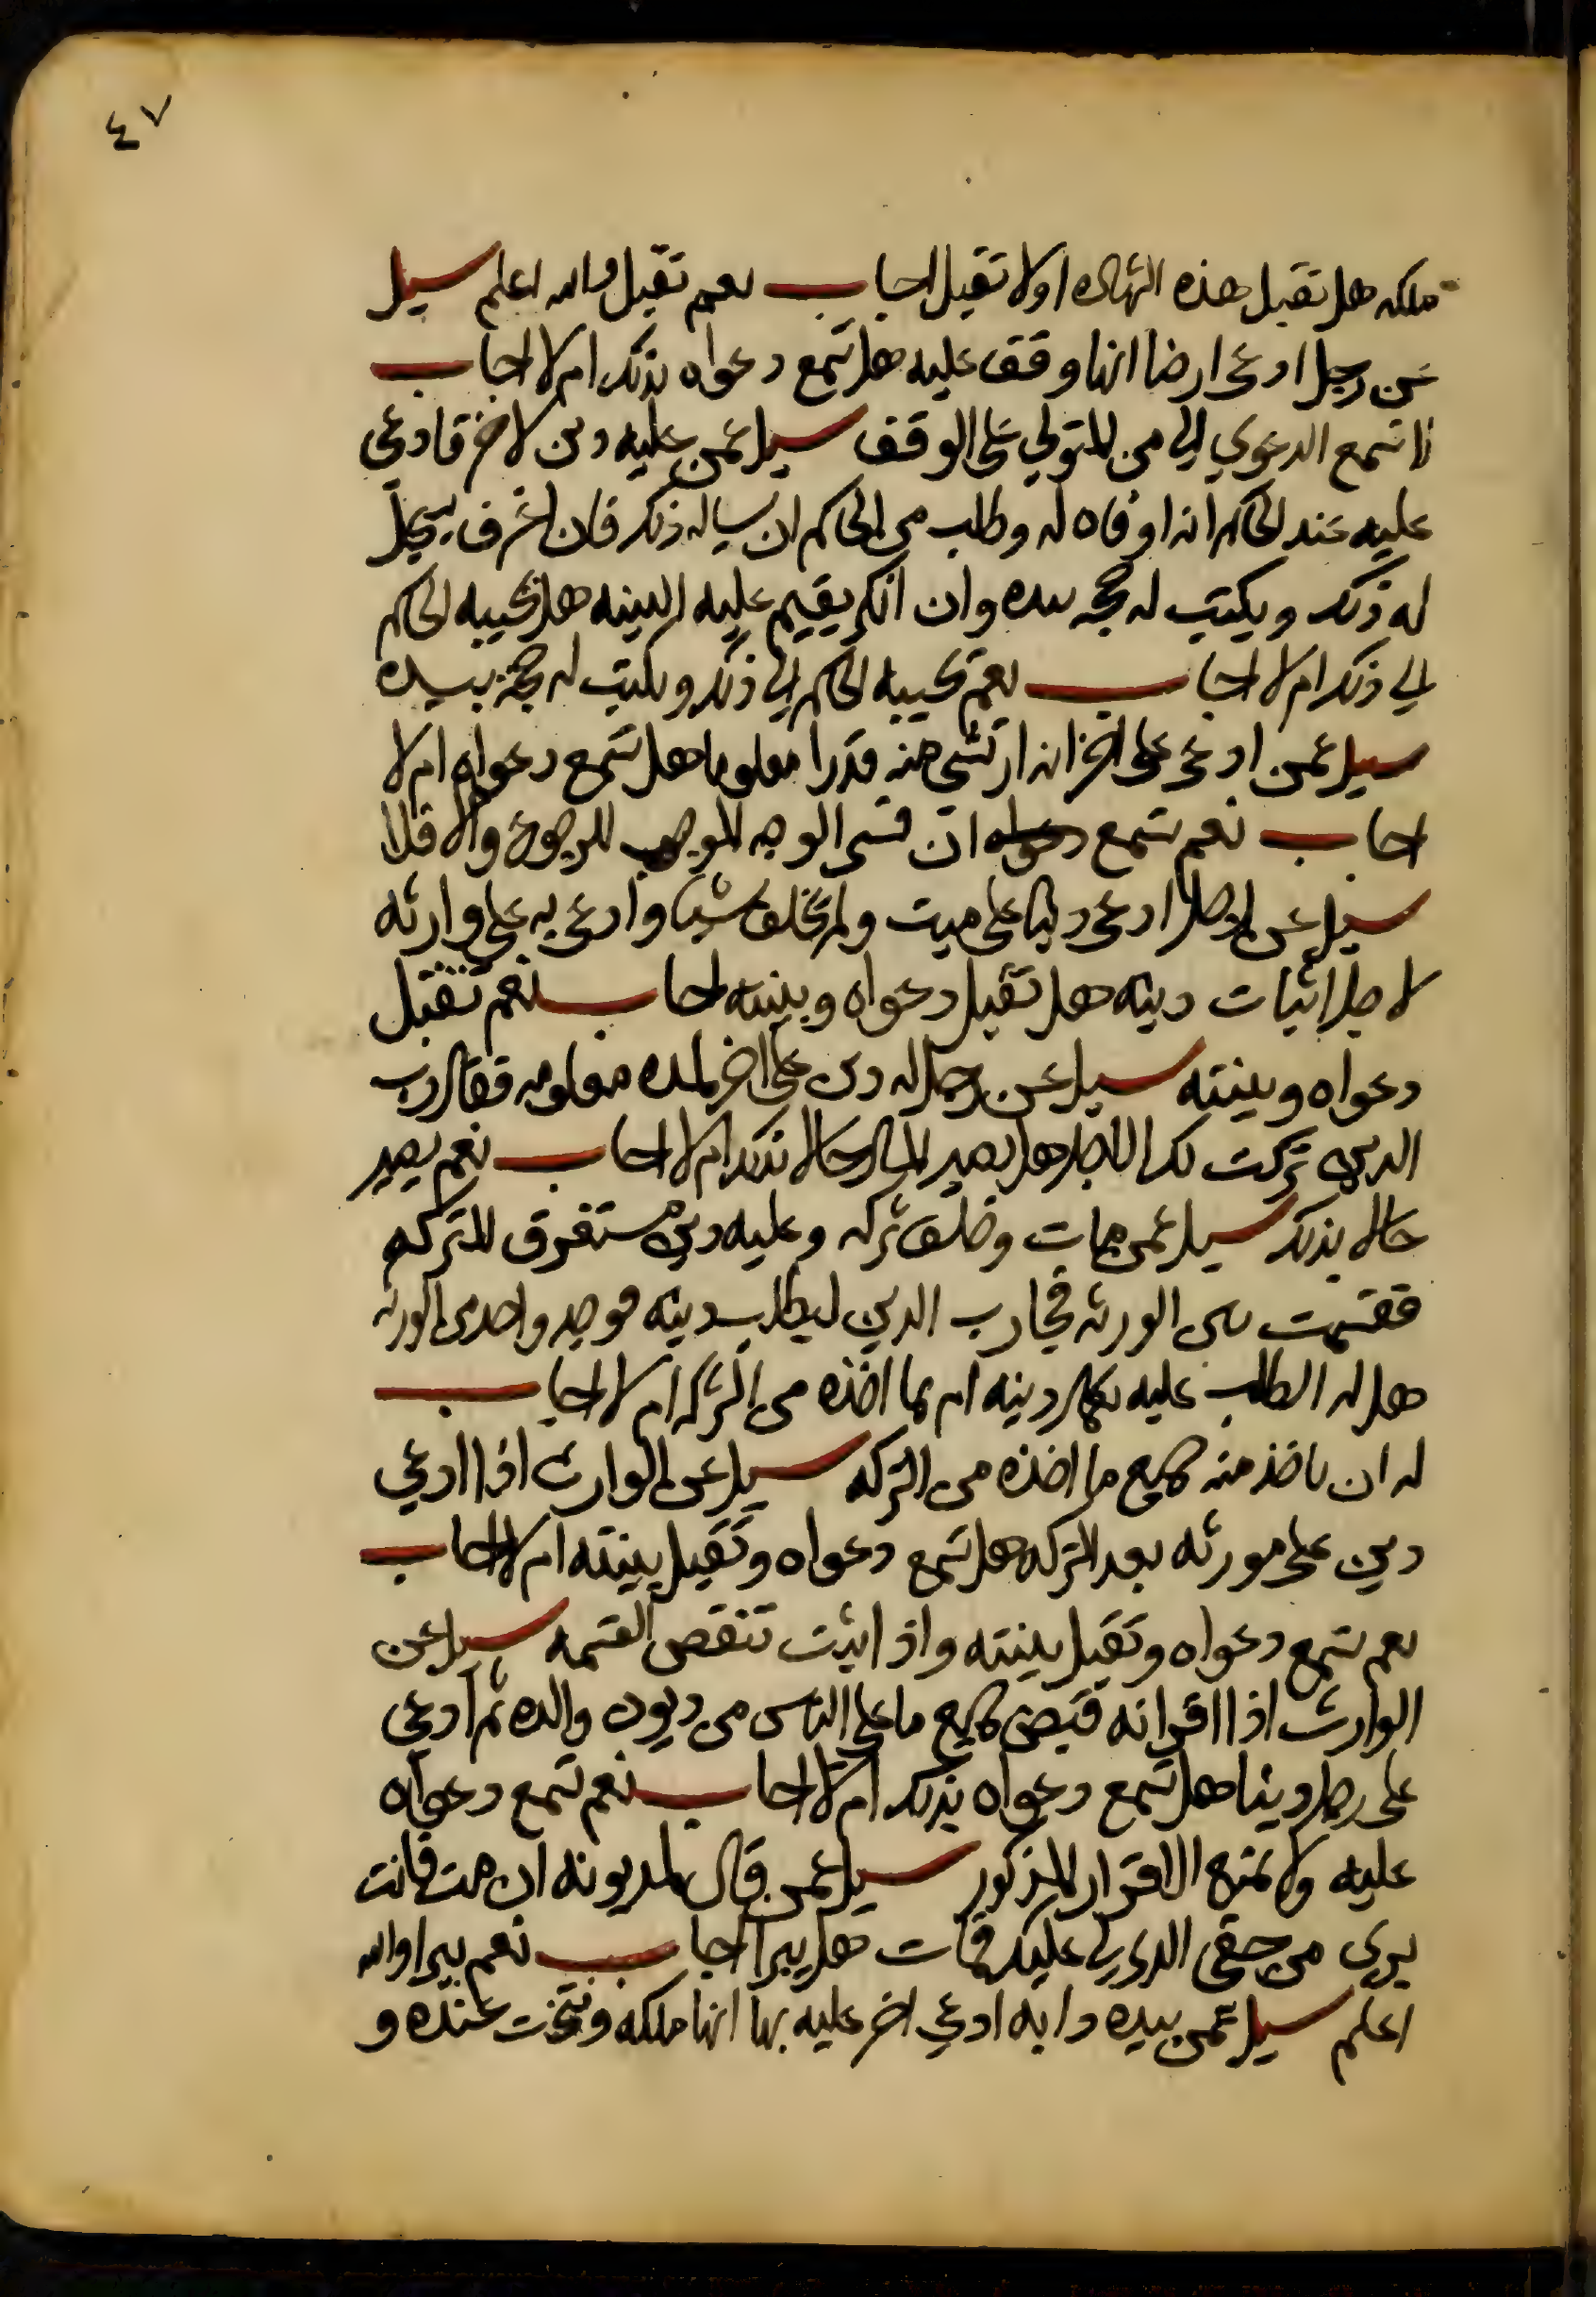 ٤٧
ملكه هل تقبل هذه الشهاده او لا تقبل اجاب نعم تقبل والله اعلم سيل
عن رجل ادعى ارضا انها وقف عليه هل تسمع دعواه بذلك ام لا اجاب
لا تسمع الدعوي الا من المتولي على الوقف سيل عمن عليه دين لاخر فادعي
عليه عند الحاكم انه اوفاه له وطلب من الحاكم ان يساله ذلك فان اعترف يسجل
له ذلك ويكتب له حجه بيده وان انكر يقيم عليه البينه هل يجيبه الحاكم
الي ذلك ام لا اجاب نعم يجيبه الحاكم الي ذلك ويكتب له حجة بيده
سيل عمن ادعى على اخر انه ارتشي منه قدرا معلوما هل تسمع دعواه ام لا
اجاب نعم تسمع دعواه ان فسر الوجه الموجب للرجوع والا فلا
سيل عن رجل ادعى دينا على ميت ولم يخلف شيا وادعى به على وارثه
لاجل اثبات دينه هل تقبل دعواه وبينته اجاب نعم تقبل
دعواه وبينته سيل عن رجل له دين على اخر لمده معلومه فقال رب
الدين تركت لك الاجل هل يصير المال حالا بذلك ام لا اجاب نعم يصير
حالا بذلك سيل عمن مات وخلف تركه وعليه دين مستغرق للتركه
فقسمت بين الورثه فجا رب الدين ليطلب دينه فوجد واحد من الورثه
هل له الطلب عليه بكل دينه ام بما اخذه من التركه ام لا اجاب
له ان ياخذ منه جميع ما اخذه من التركه سيل عن الوارث اذا ادعي
دين على مورثه بعد التركه هل تسمع دعواه وتقبل بينته ام لا اجاب
نعم تسمع دعواه وتقبل بينته واذا ثبت تنقض القسمه سيل عن
الوارث اذا اقر انه قبض جميع ما على الناس من ديون والده ثم ادعي
على رجل دينا هل تسمع دعواه بذلك ام لا اجاب نعم تسمع دعواه
عليه ولا يمنع الاقرار المذكور سيل عمن قال لمديونه ان مت فانت
بري من حقي الذي لي عليك فمات هل يبرا اجاب نعم يبرا والله
اعلم سيل عمن بيده دابه ادعي اخر عليه بها انها ملكه ونتجت عنده و